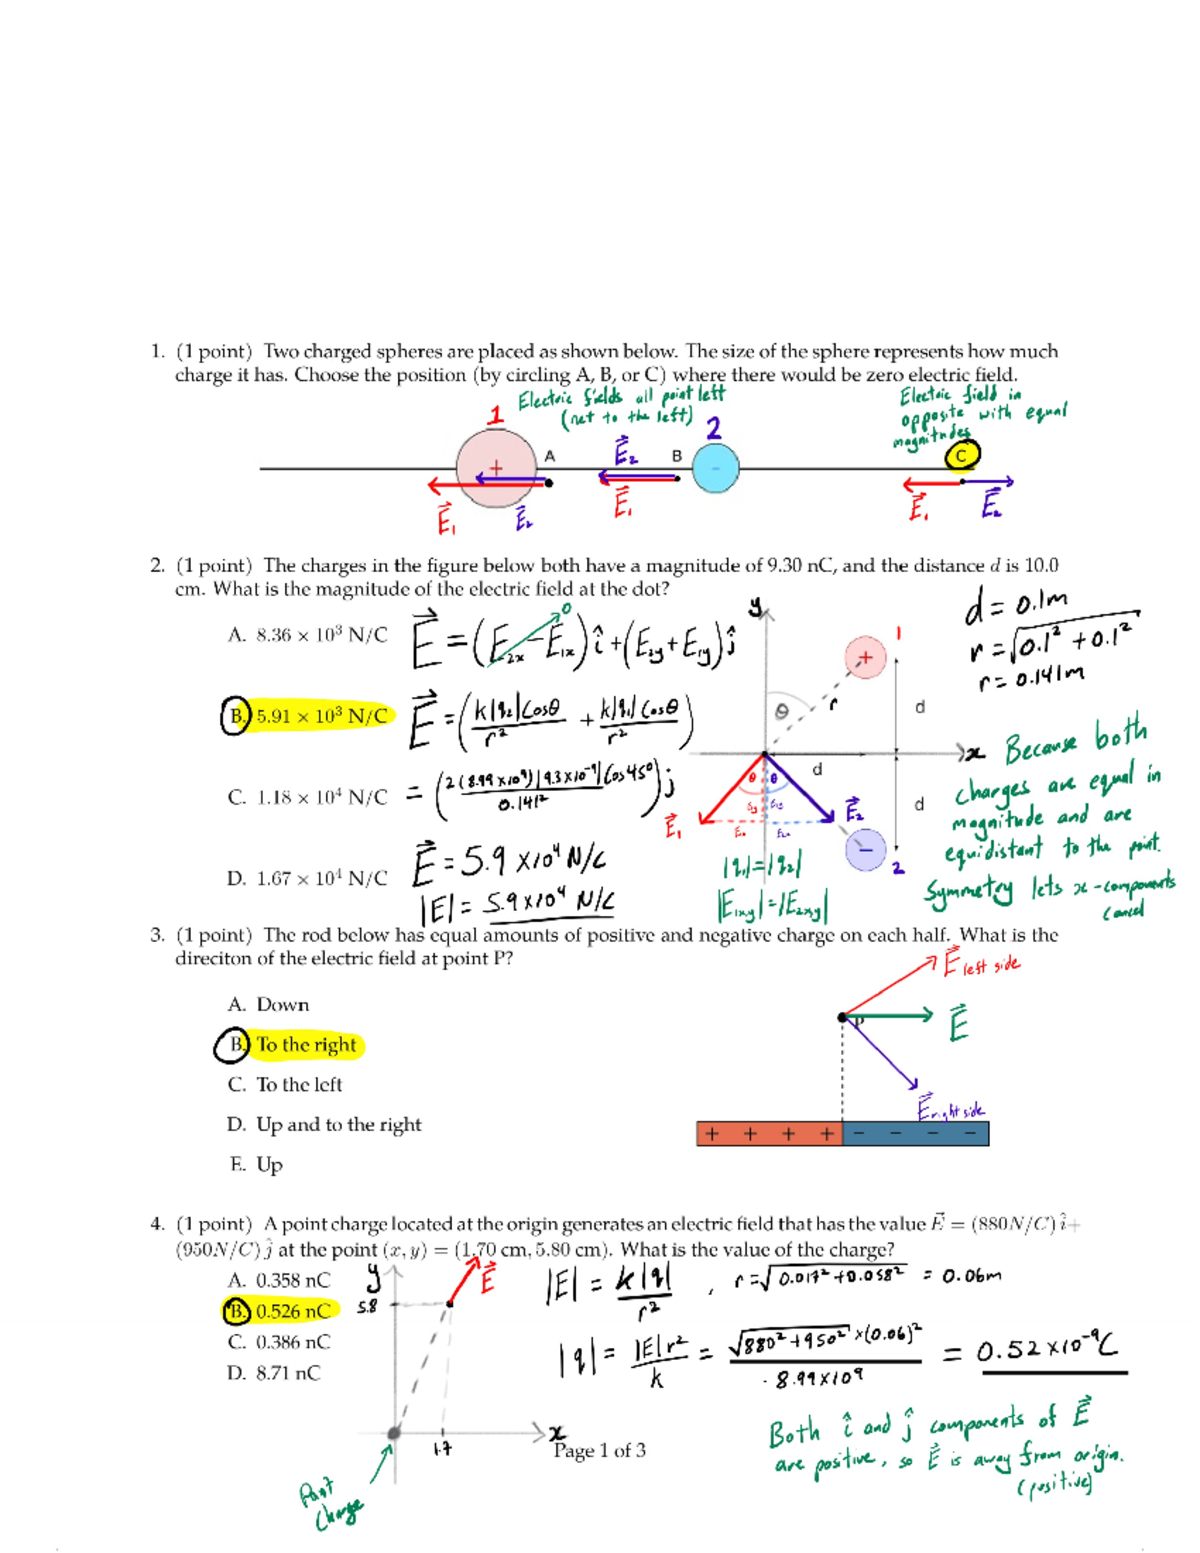 1. (1 point) Two charged spheres are placed as shown below. The size of the sphere represents how much
charge it has. Choose the position (by circling A, B, or C) where there would be zero electric field.
Electric fields all point left
(net to the left)
Electric field in
opposite with equal
magnitudes
1
2
+
A
B
-
C
E⃗₂
E⃗₁
E⃗₂
E⃗₁
E⃗₁
E⃗₂
2. (1 point) The charges in the figure below both have a magnitude of 9.30 nC, and the distance d is 10.0
cm. What is the magnitude of the electric field at the dot?
d = 0.1m
r = √0.1² + 0.1²
r = 0.141m
A. 8.36 × 10³ N/C
E⃗ = (E₂ₓ - E₁ₓ) î + (E₂y + E₁y) ĵ
0
B. 5.91 × 10³ N/C
E⃗ = (k|q₂|cosθ/r² + k|q₁|cosθ/r²)
C. 1.18 × 10⁴ N/C
= (2(8.99 x10⁹)|9.3x10⁻⁹|cos45°/0.141²) ĵ
D. 1.67 × 10⁴ N/C
E⃗ = 5.9 x10⁴ N/C
|E| = 5.9x10⁴ N/C
y
x
1
+
θ
r
d
d
d
θ
θ
E⃗₁
E⃗₂
-
2
|q₁|=|q₂|
|E₁ₓy|=|E₂ₓy|
Because both
charges are equal in
magnitude and are
equidistant to the point.
Symmetry lets x-components
cancel
3. (1 point) The rod below has equal amounts of positive and negative charge on each half. What is the
direciton of the electric field at point P?
A. Down
B. To the right
C. To the left
D. Up and to the right
E. Up
E⃗ left side
E⃗
P
E⃗ right side
+ + + + - - - -
4. (1 point) A point charge located at the origin generates an electric field that has the value E⃗ = (880N/C) î+
(950N/C) ĵ at the point (x, y) = (1.70 cm, 5.80 cm). What is the value of the charge?
A. 0.358 nC
B. 0.526 nC
C. 0.386 nC
D. 8.71 nC
y
E⃗
5.8
x
1.7
Point
Charge
|E| = k|q|/r² , r = √0.017² + 0.058² = 0.06m
|q| = |E|r²/k = √880² + 950² x(0.06)²/8.99x10⁹ = 0.52 x10⁻⁹C
Both î and ĵ components of E⃗
are positive, so E⃗ is away from origin.
(positive)
Page 1 of 3